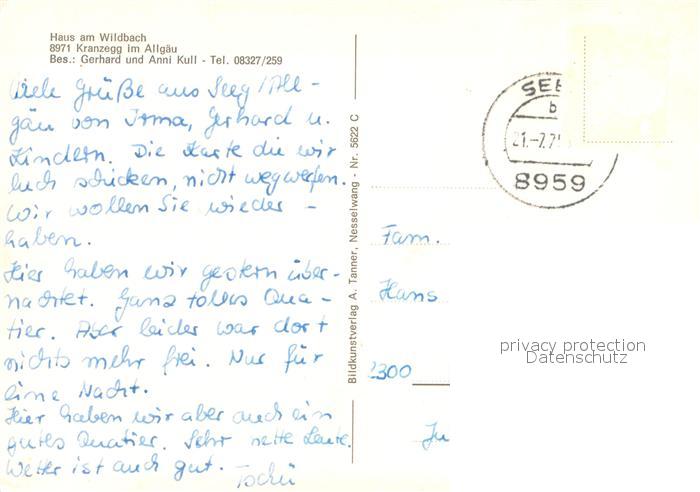 Haus am Wildbach
8971 Kranzegg im Allgäu
Bes.: Gerhard und Anni Kull - Tel. 08327/259
Viele Grüße aus Seeg/All-
gäu von Irma, Gerhard u.
Kindern. Die Karte die wir
Euch schicken, nicht wegwerfen.
Wir wollen Sie wieder -
haben.
Hier haben wir gestern über-
nachtet. Ganz tolles Qua-
tier. Aber leider war dort
nichts mehr frei. Nur für
eine Nacht.
Hier haben wir aber auch ein
gutes Quatier. Sehr nette Leute.
Wetter ist auch gut. Tschü
Bildkunstverlag A. Tanner, Nesselwang - Nr. 5622 C
SEE
b
21.-7.7
8959
Fam.
Hans
2300
privacy protection
Datenschutz